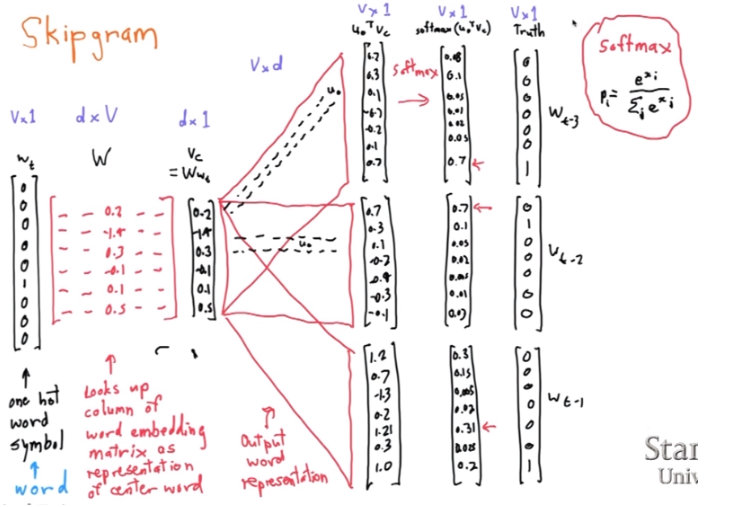 Skipgram
V×1
d×V
d×1
V×d
V×1
V×1
V×1
w_t
W
V_c
= Ww_t
u_o^T v_c
softmax(u_o^T v_c)
Truth
softmax
p_i = e^{x_i} / Σ_j e^{x_j}
0
0
0
0
0
1
0
0
0
– – 0.2 – –
– – -1.4 – –
– – 0.3 – –
– – -0.1 – –
– – 0.1 – –
– – 0.5 – –
0.2
-1.4
0.3
-0.1
0.1
0.5
u_o
u_o
softmax
0.3
0.1
-0.2
0.1
0.7
0.1
0.01
0.02
0.05
0.7
0
0
0
0
0
0
1
w_{t-3}
0.7
0.3
0.1
-0.2
-0.4
-0.3
-0.1
0.7
0.1
0.05
0.01
0.03
0
1
0
0
0
0
0
w_{t-2}
1.2
0.7
-1.3
0.2
1.21
0.3
1.0
0.3
0.15
0.02
0.31
0.2
0
0
0
0
0
0
1
w_{t-1}
one hot
word
symbol
word
Looks up
column of
word embedding
matrix as
representation
of center word
Output
word
representation
Stan
Univ